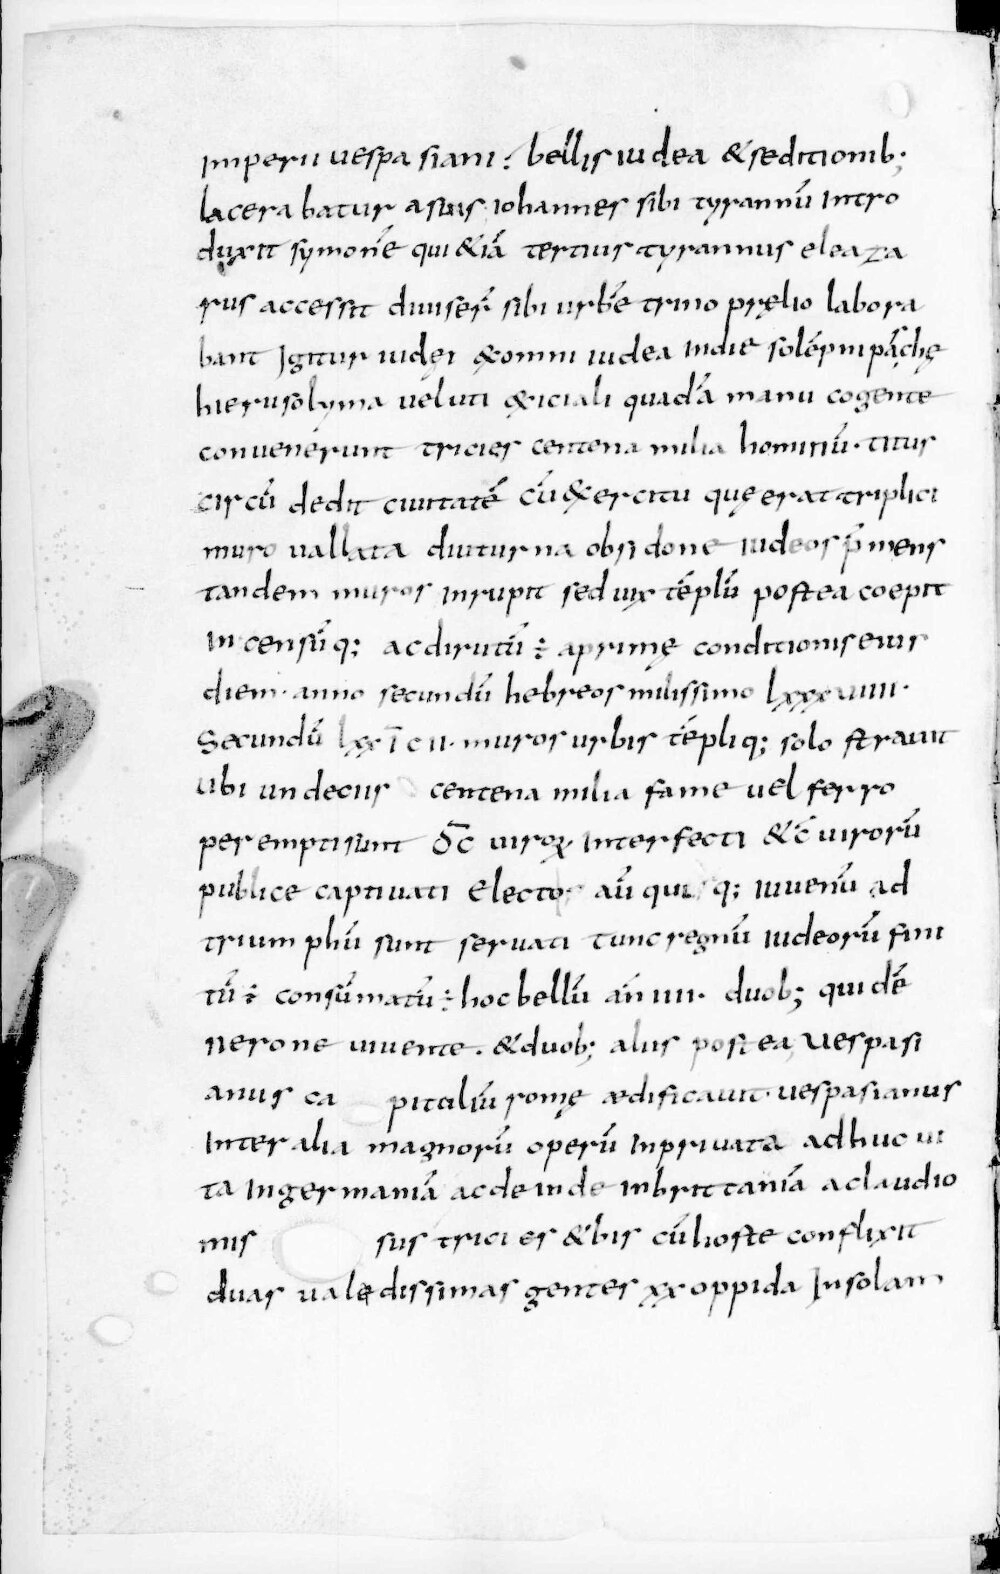 imperii uespasiani : bellis iudea & seditionib;
lacerabatur a suis iohannes sibi tyrannū intro
duxit symonē qui & iā tertius tyrannus eleaza
rus accessit diuiser̄ sibi urbē trino pręlio labora
bant Igitur iudęi & omni iudea in die solēpni pāschę
hierusolyma ueluti exiciali quadā manu cogente
conuenerunt tricies centena milia hominū · titus
circū dedit ciuitatē cū exercitu quę erat triplici
muro uallata diuturna obsidone iudeos p̄mens
tandem muros inrupit sed uix tēplū postea coepit
incensūq; ac dirutū : a primę conditionis eius
diem · anno secundū hebreos milissimo lxxxuiiii ·
Secundū lxx īcii · muros urbis tēpliq; solo strauit
ubi undecies centena milia fame uel ferro
perempti sunt d̄c uiroꝝ · interfecti & c̄ uirorū
publice captiuati electo aū qui q; iuuenū ad
trium phū sunt seruati tunc regnū iudeorū fini
tū : consūmatū : hoc bellū ān iiii · duob; quidē
nerone uiuente · & duob; aliis postea uespasi
anus ca pitoliū romę ædificauit · uespasianus
inter alia magnorū operū in priuata adhuc ui
ta in germaniā ac deinde in brittaniā a claudio
mis sus trici es & bis cū hoste conflixit
duas ualedissimas gentes xx oppida Insolam